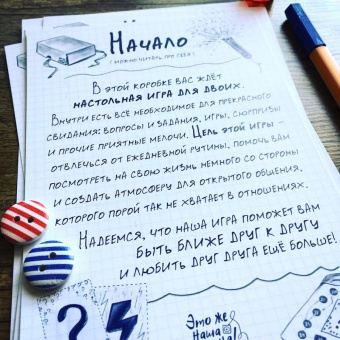 Начало
(можно читать про себя)
В этой коробке вас ждёт
настольная игра для двоих.
Внутри есть всё необходимое для прекрасного
свидания: вопросы и задания, игры, сюрпризы
и прочие приятные мелочи. Цель этой игры –
отвлечься от ежедневной рутины, помочь вам
посмотреть на свою жизнь немного со стороны
и создать атмосферу для открытого общения,
которого порой так не хватает в отношениях.
Надеемся, что наша игра поможет вам
быть ближе друг к другу
и любить друг друга ещё больше!
?
Это же
наша